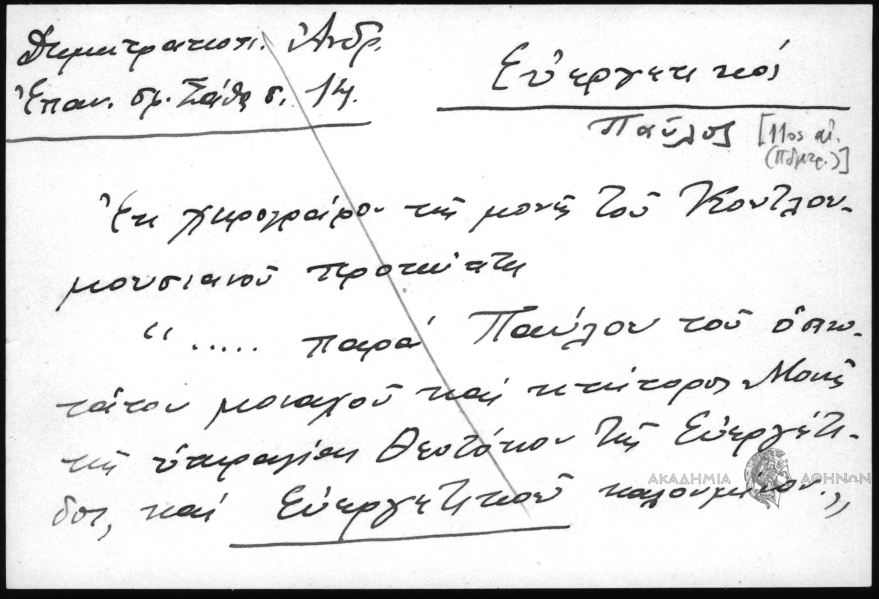 Δημητρακοπ. Ἀνδρ.
Ἐπαν. σφ. Σάθα σ. 14.
Εὐεργετικοί
Παῦλος [11ος αἰ.
Ἐκ χειρογράφου τῆς μονῆς τοῦ Κουτλου-
μουσιανοῦ προτάττει
“..... παρά Παύλου τοῦ ὁσιω-
τάτου μοναχοῦ καί κτήτορος Μονῆς
τῆς ὑπεραγίας Θεοτόκου τῆς Εὐεργέτι-
δος, καί Εὐεργετικοῦ καλουμένου.„
ΑΚΑΔΗΜΙΑ ΑΘΗΝΩΝ